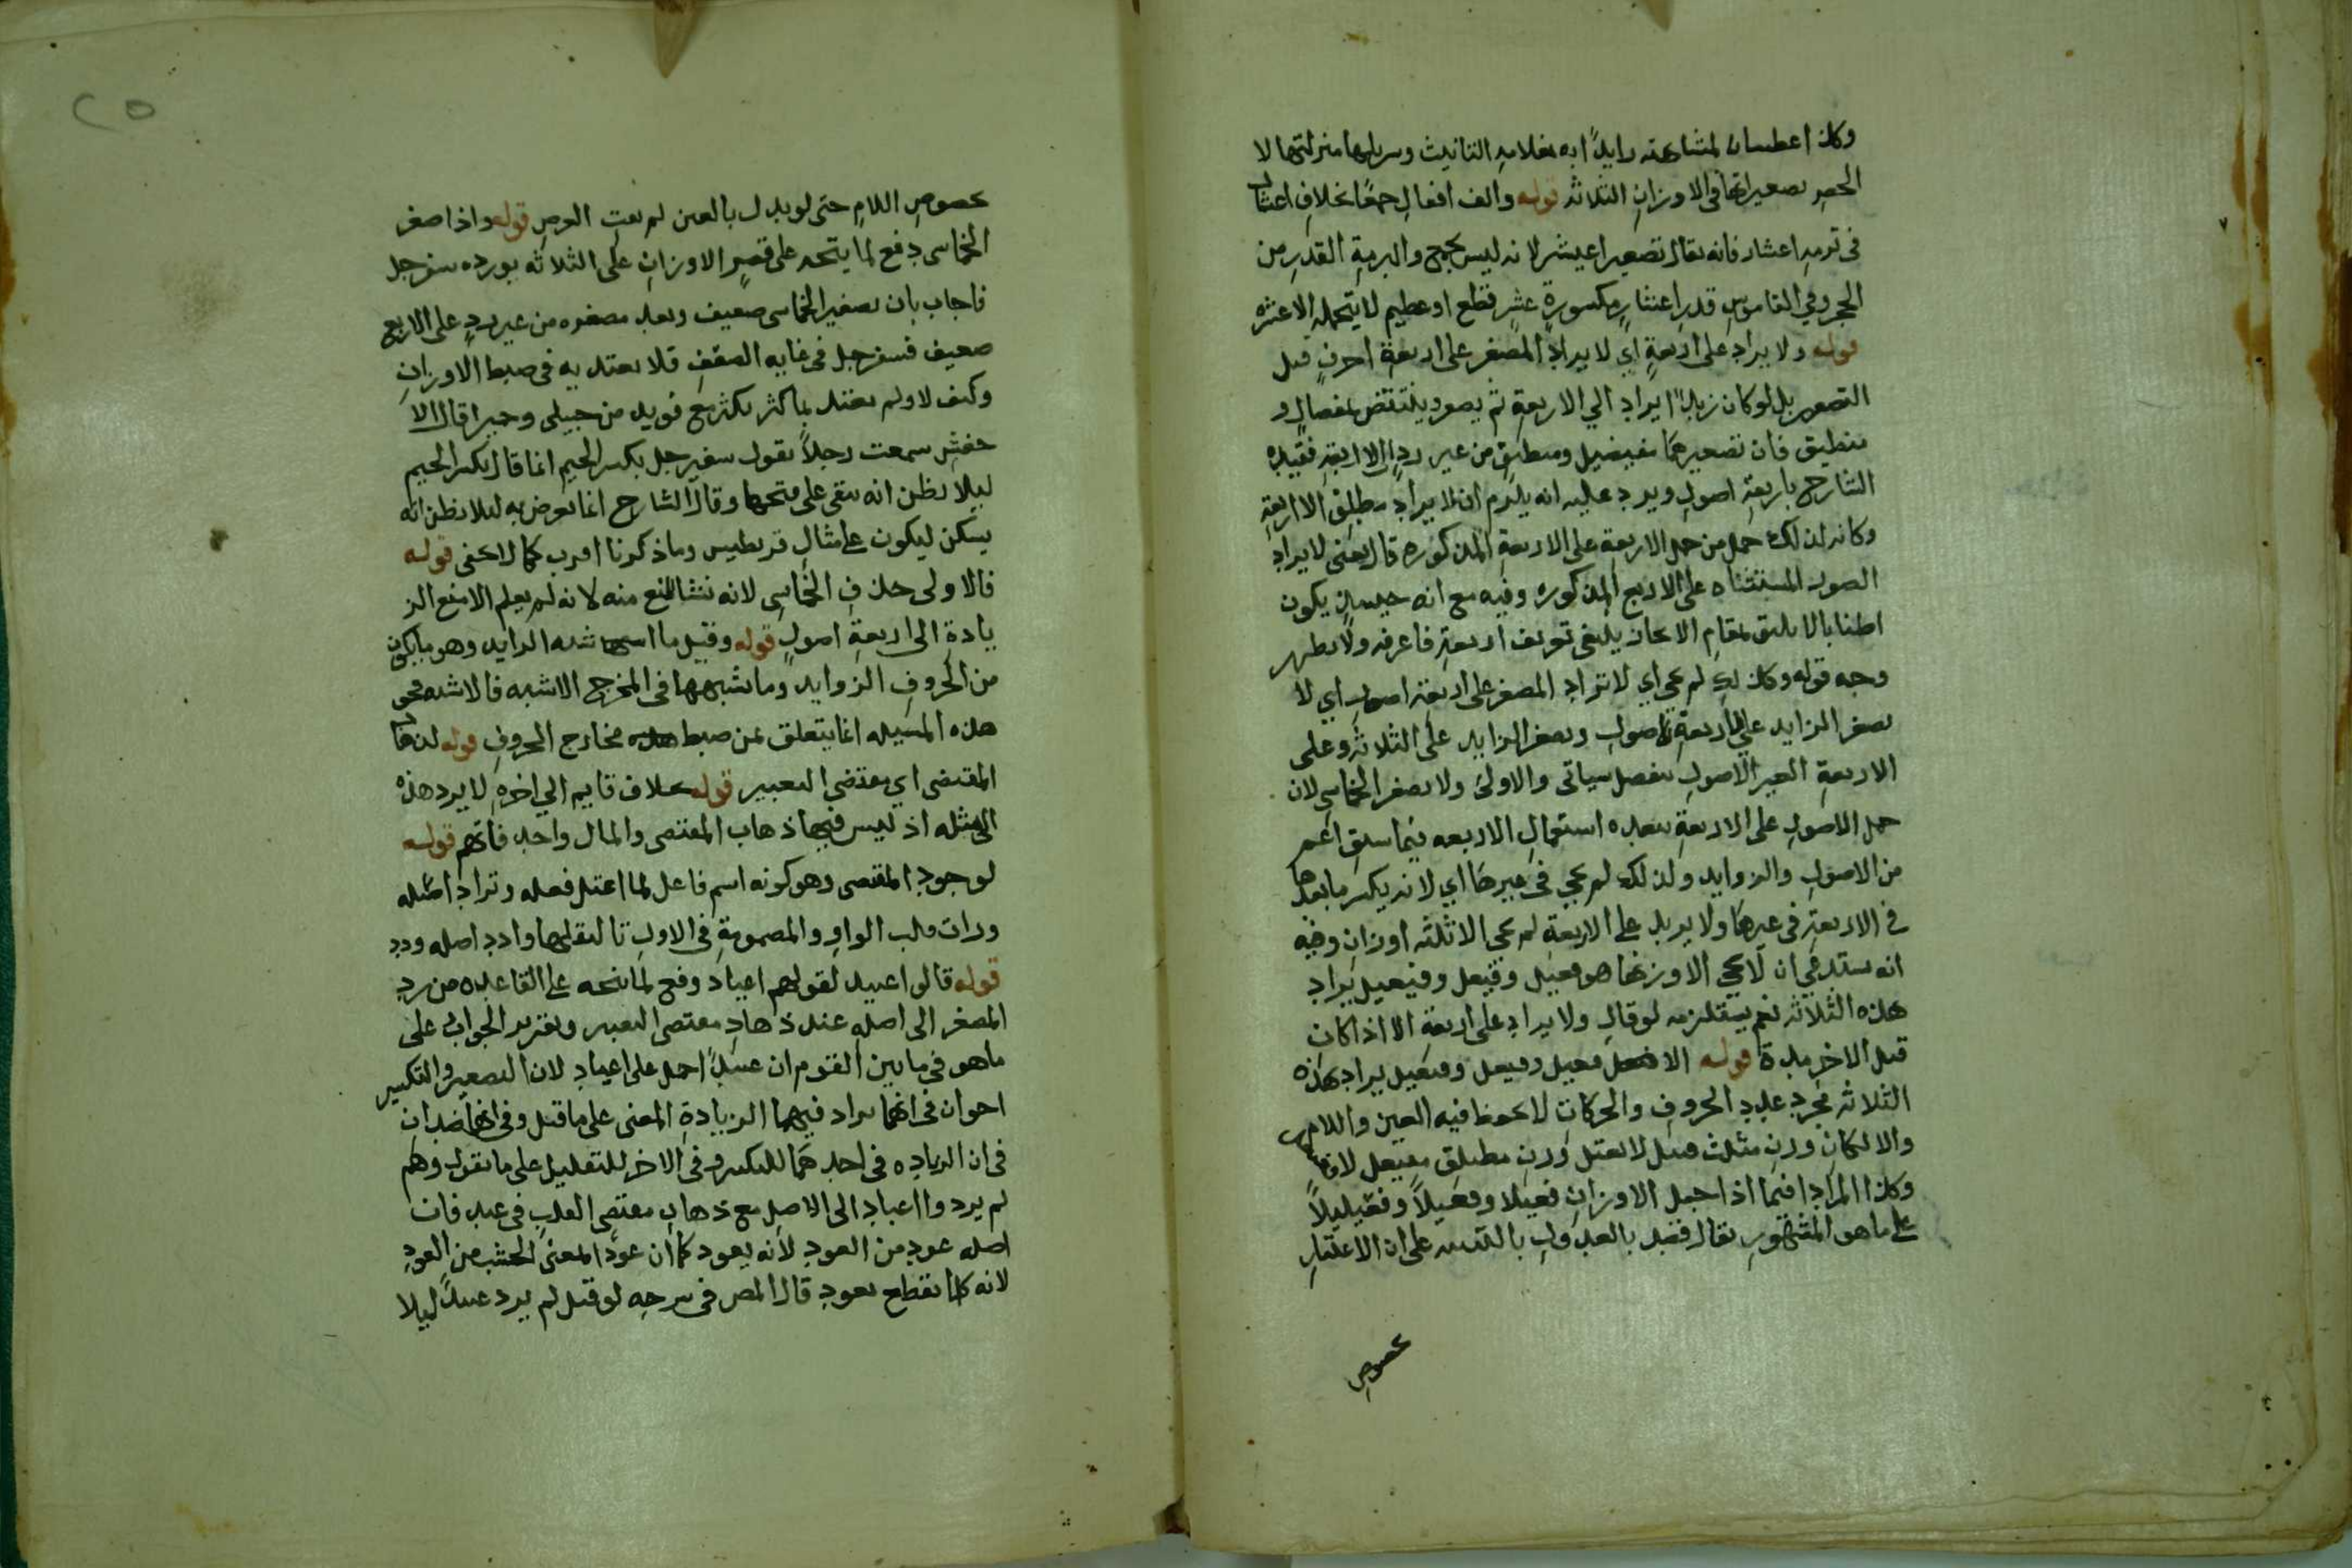 وكان اعطسان لمشابهته زايداه بعلامة التانيث وسربلها منزلتها لا
الحصر تصغير اتها في الاوزان الثلاثه قوله والف افعال جمعا بخلاف اعشار
في برمه اعشار فانه يقال تصغيره اعيشر لانه ليس بجمع والبرمة القدر من
الحجر وفي القاموس قدر اعشار مكسورة عشر قطع او عظيم لا يتحمله الا عشره
قوله ولا يزاد على اربعة اي لا يزاد المصغر على اربعة احرف قبل
التصغير بل لو كان زيدا يراد الي الاربعة ثم يصغر وينتقض بمفصال و
منطيق فان تصغيرهما مفيضيل ومنطيق من غير رد الى الاربعة فقيده
الشارح باربعة اصول ويرد عليه انه يلزم ان لا يزاد مطلق الاربعة
وكانه لذلك حمل من حمل الاربعة على الاربعة المذكوره قال يعنى لا يزاد
الصور المستثناه على الاربع المذكوره وفيه مع انه حينئذ يكون
اطنابا لا يليق بمقام الايجاز يلغى تعريف اربعة فاعرفه ولا يظهر
وجه قوله وكذلك لم يجي اي لا تزاد المصغر على اربعة اصول اي لا
يصغر الزايد على اربعة اصول ويصغر الزايد على الثلاثة وعلى
الاربعة الغير الاصول بتفصيل سياتى والاولى ولا يصغر الخماسى لان
حمل الاصول على الاربعة بعده استعمال الاربعه فيما سبق اعم
من الاصول والزوايد ولذلك لم يجي في غيرها اي لانه يكسر ما بعدها
في الاربعة في غيرها ولا يزيد على الاربعة لم يجي الا ثلثه اوزان وفيه
انه يستدعي ان لا يجي الا وزنها هو فعيل وفعيعل وفعيعيل يراد
بهذه الثلاثه نعم يستلزمه لو قال ولا يراد على اربعة الا اذا كان
قبل الاخر مدة قوله الا فعيل وفعيعل وفعيعيل يراد بهذه
الثلاثه مجرد عدد الحروف والحركات لا يلحوظ فيه العين واللام
والا لكان وزن مثلث فعيل لا يعتل وزن مطلق مفيعل لا
وكذا المراد فيما اذا جعل الاوزان فعيلا وفعيلا وفعيليلا
على ما هو المشهور يقال فقيد بالعدول بالتنبيه على ان الاعتبار
بخصوص

٢٥
بخصوص اللام حتى لو بدل بالعين لم يفت الغرض قوله واذا صغر
الخماسى دفع لما يتجه على قصر الاوزان على الثلاثه بورده سفرجل
فاجاب بان تصغير الخماسى ضعيف وبعد مصغره من غير رد على الاربع
ضعيف فسفرجل في غايه الضعف فلا يعتد به في ضبط الاوزان
وكيف لا ولم يعتد بما كثر بكثر مع فويد من حبيلى وحميرا قال الا
خفش سمعت رجلا يقول سفيرجل بكسر الجيم انما قال بكسر الجيم
ليلا يظن انه بقى على فتحها وقال الشارح انما تعرض به لئلا يظن انه
يسكن ليكون على مثال قريطيس وما ذكرنا اقرب كما لا يخفى قوله
فالاولى حذف الخامس لانه نشا المنع منه لانه لم يعلم الا منع الز
يادة الى اربعة اصول قوله وقيل ما اشبه الزايد وهو ما يكون
من الحروف الزوايد وما شبهها في المخرج الاشبه فالاشبه فحوى
هذه المسيله انما يتعلق بمن ضبط مخارج الحروف قوله لذهاب
المقتضى اي مقتضى التغيير قوله بخلاف قايم الي اخره لا يرد هذه
الى مثله اذ ليس فيها ذهاب المقتضى والمال واحد فافهم قوله
لوجود المقتضى وهو كونه اسم فاعل لما اعتل فعله وتراد اصله
وراث قلب الواو والمضمومة في الاول تا لثقلها وادد اصله ودد
قوله قالوا عييد لقولهم اعياد دفع لما يتجه على القاعده من رد
المصغر الى اصله عند ذهاب مقتضى التغيير وتقرير الجواب على
ما هو في ما بين القوم ان عييدا حمل على اعياد لان التصغير والتكسير
اخوان في انهما يراد فيهما الزيادة المعنى على ما قيل وفي انهما ضدان
في ان الزياده في احدهما للتكسير وفي الاخر للتقليل على ما يقول وهم
لم يردوا اعياد الى الاصل مع ذهاب مقتضى القلب في عيد فان
اصله عود من العود لانه يعود كما ان عودا لمعنى الخشب من العود
لانه كلما يقطع يعود قال المص في شرحه لو قيل لم يرد عييد ليلا